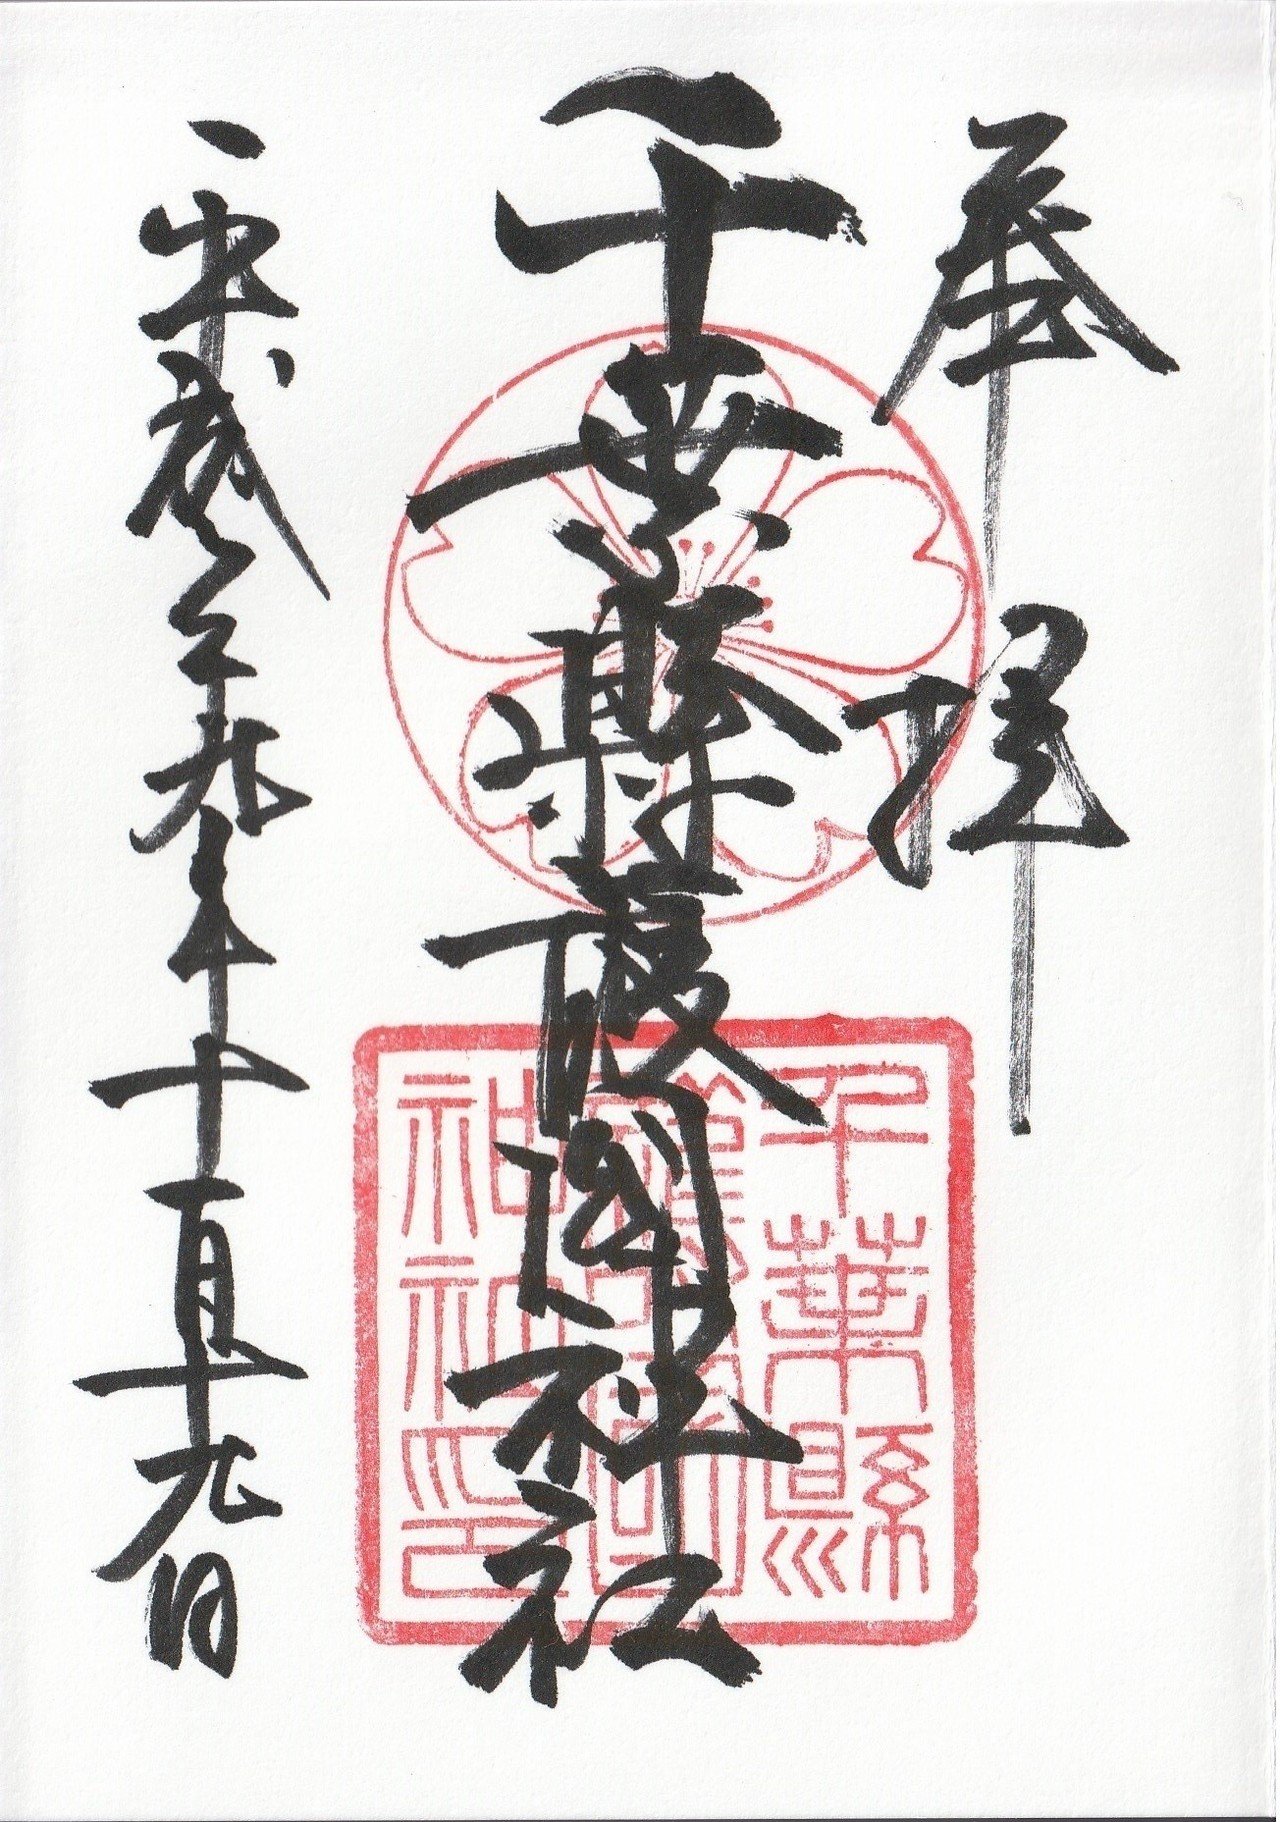 奉拝
千葉縣護國神社
平成二十九年十一月十九日
千葉縣
護國
神社印